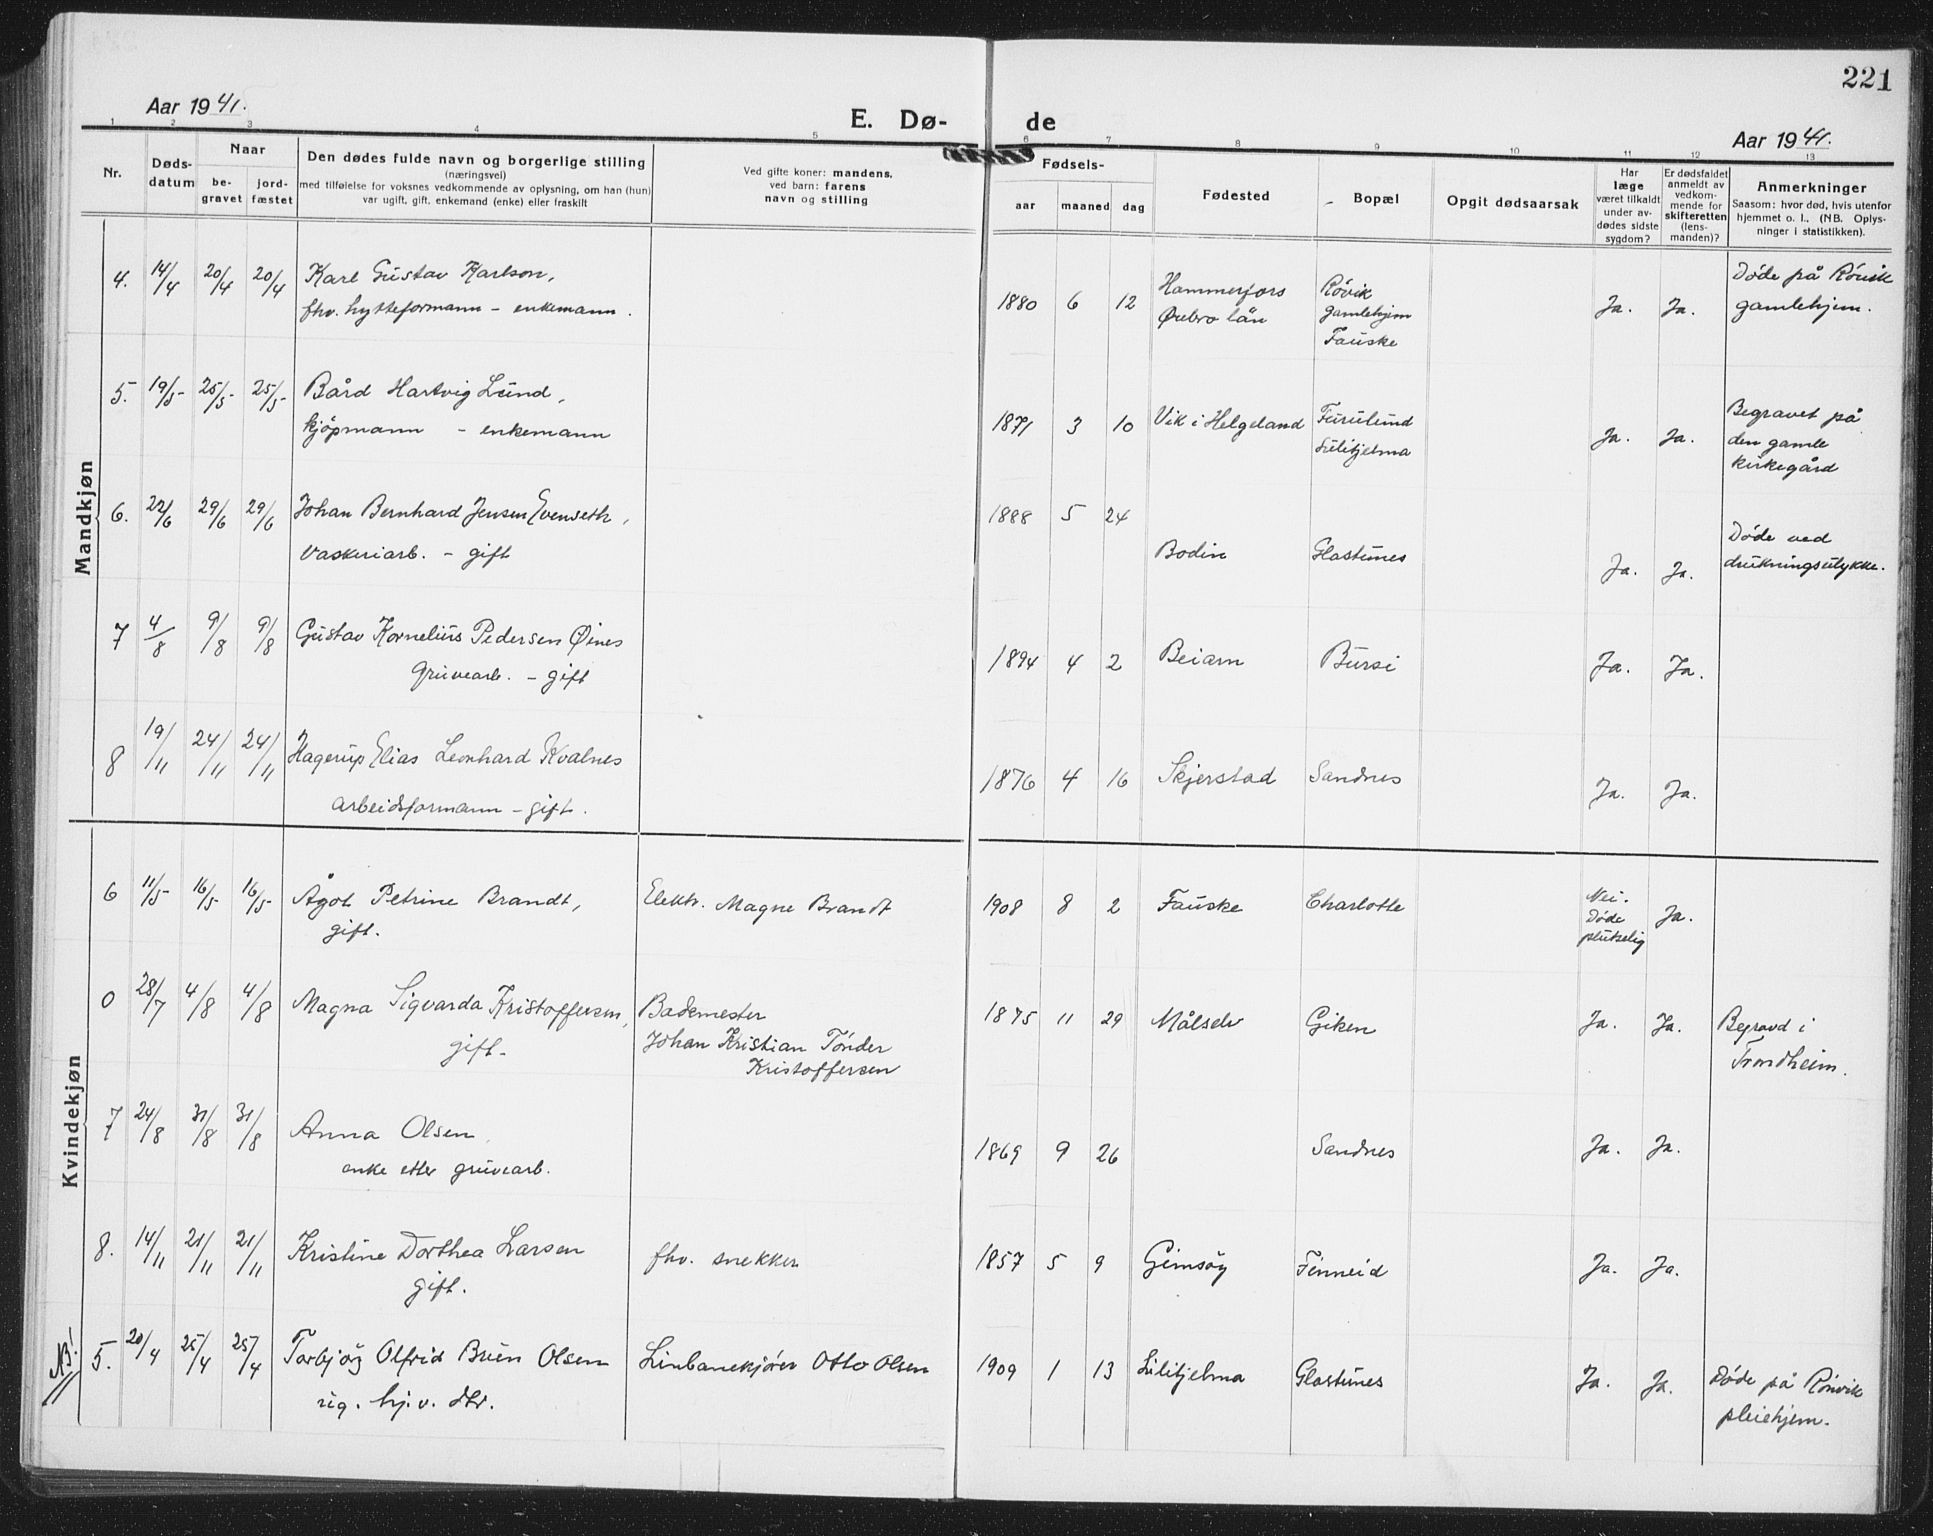 221
Aar 1941.
E. Dø-
de
Aar 1941.
1 2 3 4 5 6 7 8 9 10 11 12 13
Nr.
Døds-
datum
Naar
be-
gravet
jord-
fæstet
Den dødes fulde navn og borgerlige stilling
(næringsvei)
med tilføielse for voksnes vedkommende av oplysning, om han (hun)
var ugift, gift, enkemand (enke) eller fraskilt
Ved gifte koner: mandens,
ved barn: farens
navn og stilling
Fødsels-
aar maaned dag
Fødested
Bopæl
Opgit dødsaarsak
Har
læge
været tilkaldt
under av-
dødes sidste
sygdom?
Er dødsfaldet
anmeldt av
vedkom-
mende for
skifteretten
(lens-
manden)?
Anmerkninger
Saasom: hvor død, hvis utenfor
hjemmet o. l., (NB. Oplys-
ninger i statistikken).
Mandkjøn
4. 14/4 20/4 20/4 Karl Gustav Karlson,
fhv. hytteformann - enkemann.
1880 6 12
Hammerfors
Ørebro län
Røvik
gamlehjem
Fauske
Ja. Ja.
Døde på Röuik
gamlehjem.
5. 19/5 25/5 25/5 Bård Hartvig Lund,
kjøpmann - enkemann
1871 3 10 Vik i Helgeland
Furulund
Sulitjelma
Ja. Ja.
Begravet på
den gamle
kirkegård
6. 22/6 29/6 29/6 Johan Bernhard Jensen Evenseth,
Vaskeriarb. - gift
1888 5 24
Bodin Glastunes
Ja. Ja.
Døde ved
drukningsulykke.
7 4/8 9/8 9/8 Gustav Kornelius Pedersen Øines
gruvearb. - gift
1894 4 2 Beiarn Bursi Ja. Ja.
8 19/11 24/11 24/11 Hagerup Elias Leonhard Kvalnes
arbeidsformann - gift.
1876 4 16 Skjerstad Sandnes Ja. Ja.
Kvindekjøn
6 11/5 16/5 16/5 Ågot Petrine Brandt,
gift.
Elektr. Magne Brandt
1908 8 2 Fauske Charlotte
Nei.
Døde
plutselig
Ja.
0 28/7 4/8 4/8 Magna Sigvarda Kristoffersen,
gift.
Bademester
Johan Kristian Tønder
Kristoffersen
1875 11 29 Målselv Giken Ja. Ja.
Begravd i
Trondheim.
7 24/8 31/8 31/8 Anna Olsen,
enke etter gruvearb.
1869 9 26 Sandnes Ja. Ja.
8. 14/11 21/11 21/11 Kristine Dorthea Larsen
gift.
fhv. snekker
1857 5 9 Gimsøy Finneid Ja. Ja.
NB!
5. 20/4 25/4 25/4 Torbjørg Olfrid Bruen Olsen
ug. hj.v. dtr.
Linbanekjører Otto Olsen
1909 1 13 Sulitjelma Glastunes Ja. Ja.
Døde på Rønvik
pleiehjem.